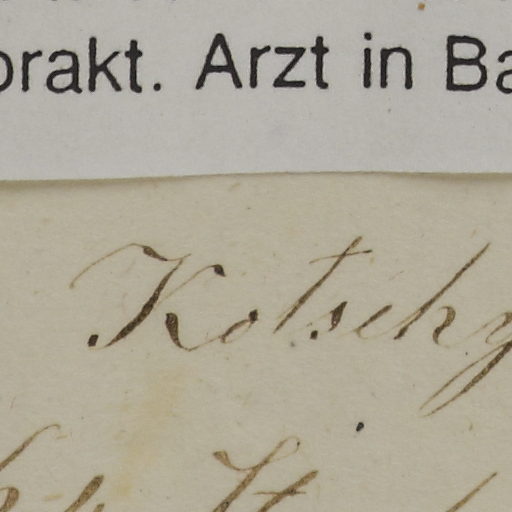 prakt. Arzt in Ba
Kotschy